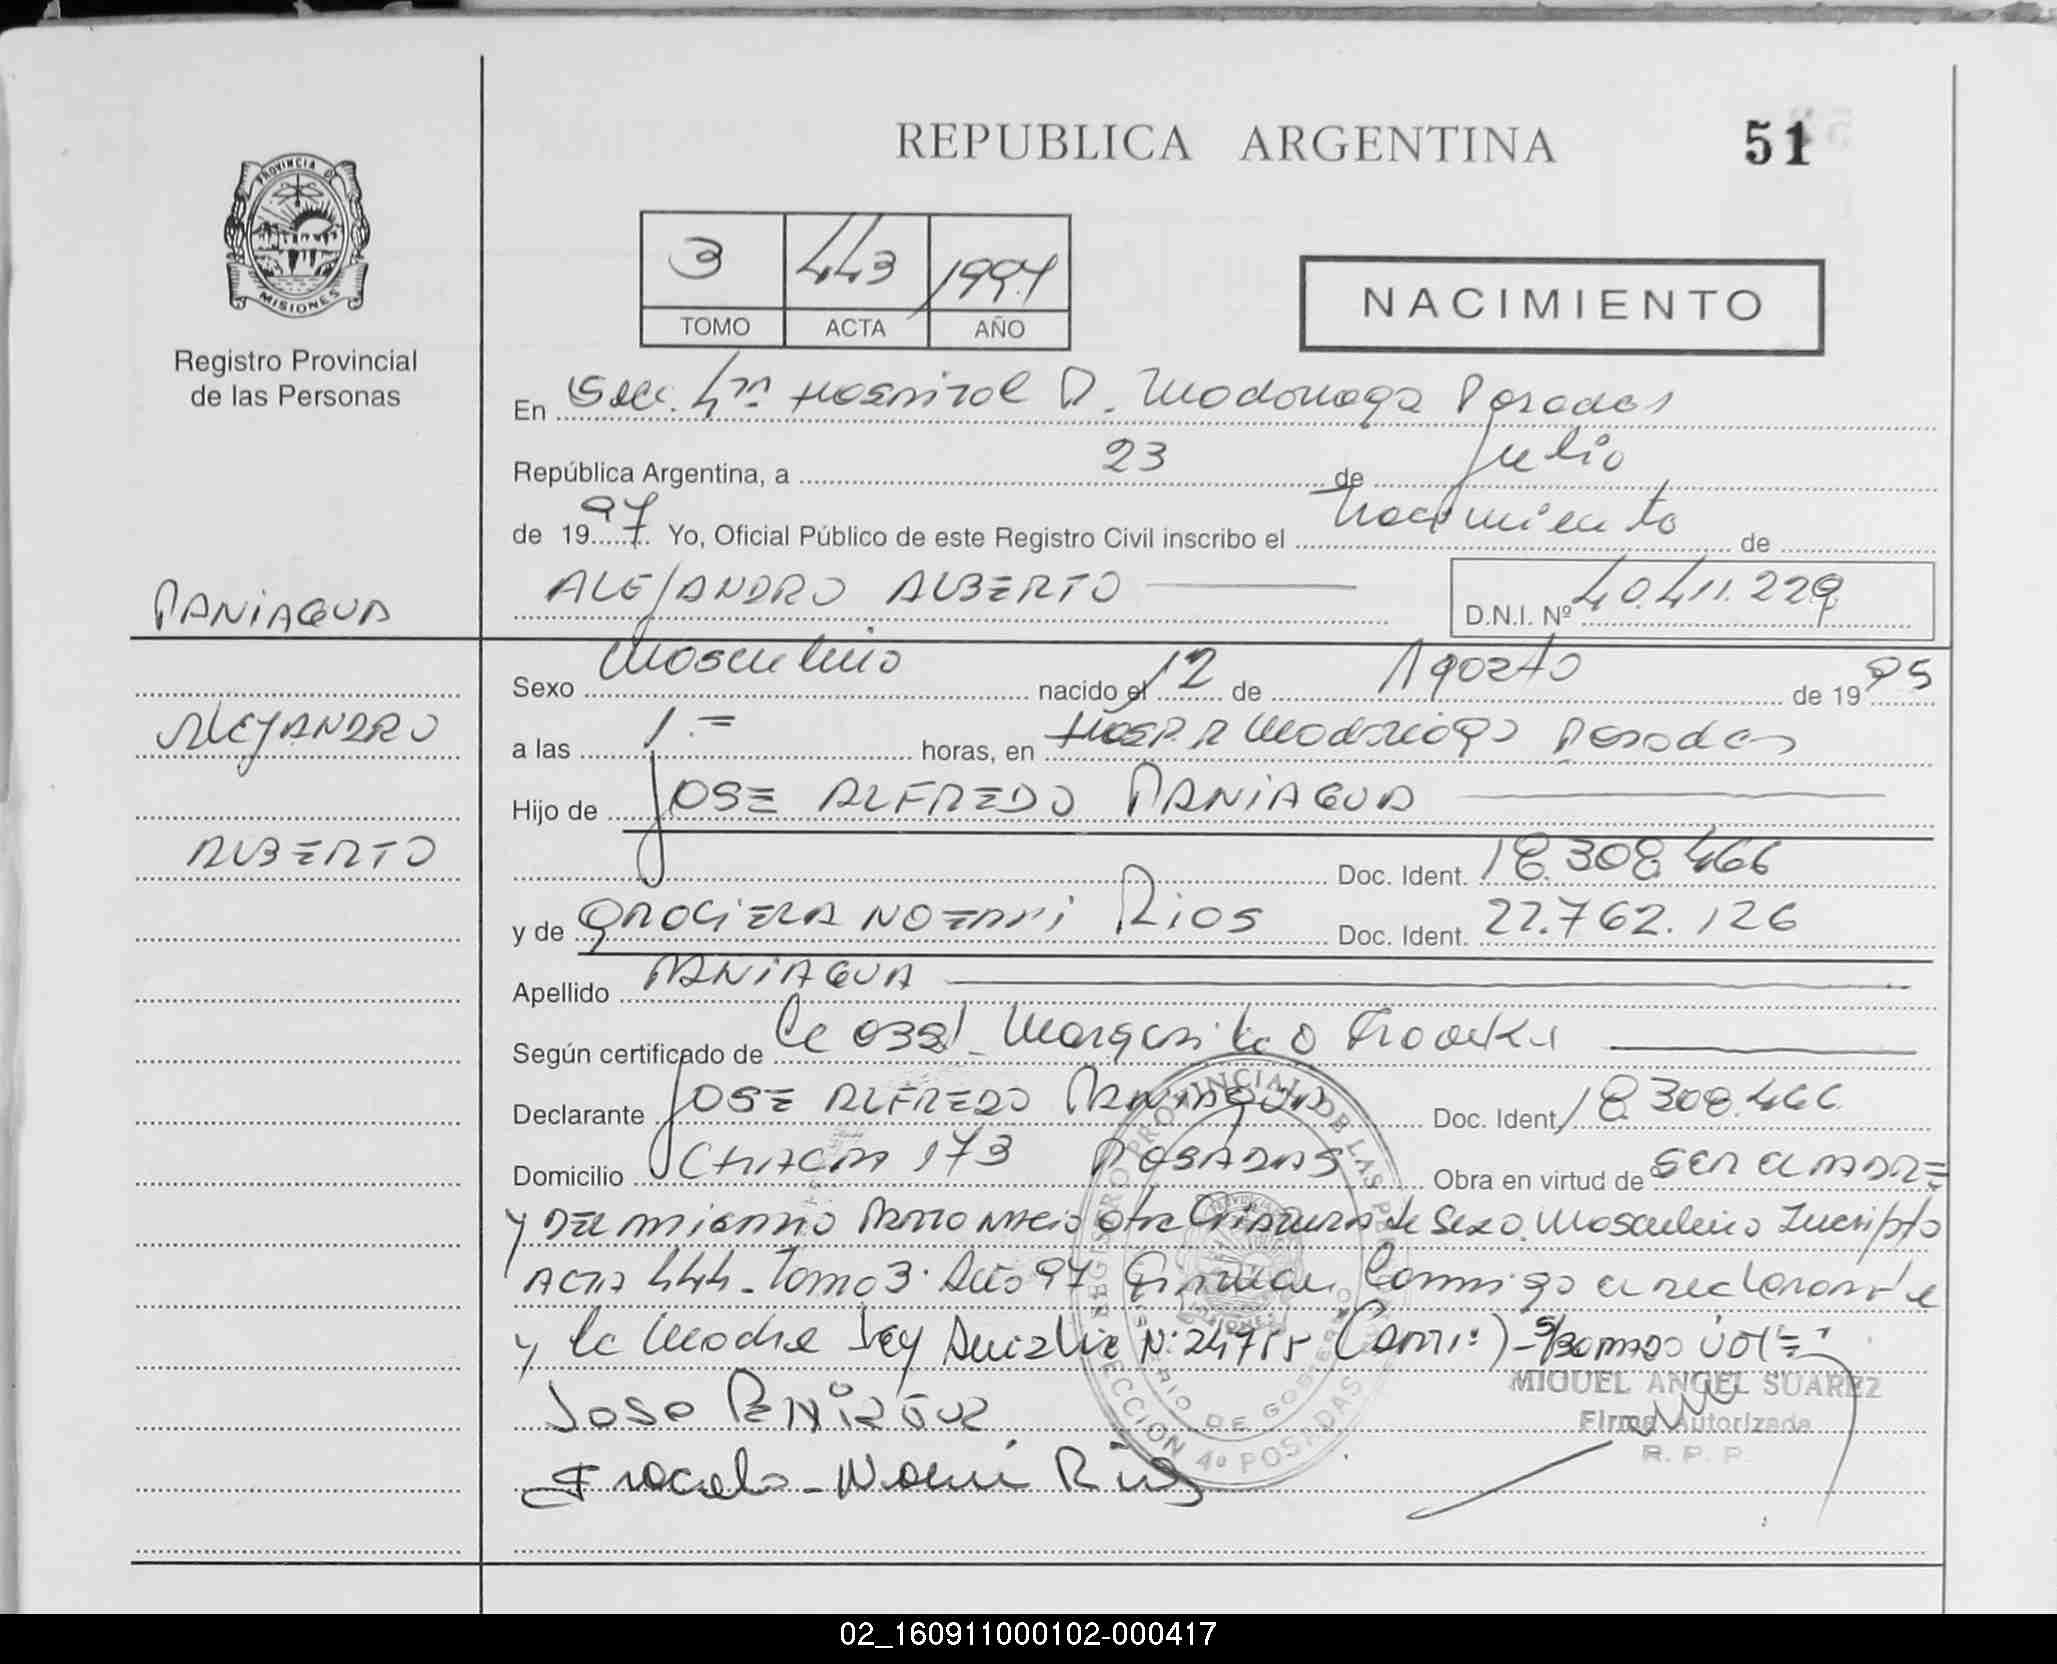 REPUBLICA ARGENTINA
51
PROVINCIA DE
MISIONES
Registro Provincial
de las Personas
3 443 1997
TOMO ACTA AÑO
NACIMIENTO
En Secc. 4ta Hospital R. Madariaga Posadas
República Argentina, a 23 de Julio
de 1997 Yo, Oficial Público de este Registro Civil inscribo el Nacimiento de
ALEJANDRO ALBERTO
D.N.I. Nº 40.411.229
PANIAGUA
Sexo Masculino nacido el 12 de Agosto de 1995
ALEJANDRO
a las 1.= horas, en Hosp. R Madariaga Posadas
Hijo de JOSE ALFREDO PANIAGUA
ALBERTO
Doc. Ident. 18.308.466
y de GRACIELA NOEMI RIOS Doc. Ident. 22.762.126
Apellido PANIAGUA
Según certificado de la Margarita
Declarante JOSE ALFREDO PANIAGUA Doc. Ident. 18.308.466
Domicilio CHACRA 173 POSADAS Obra en virtud de SER EL PADRE
Y DEL MISMO PARTO NACIO otra Criatura de Sexo Masculino Inscripto
ACTA 444 - Tomo 3. Año 97 Firman Conmigo el declarante
y la Madre Ley Nº 24755 VALE
REGISTRO PROVINCIAL DE LAS PERSONAS
MINISTERIO DE GOBIERNO
SECCION 4º POSADAS
MIGUEL ANGEL SUAREZ
Firma Autorizada
R. P. P.
Jose Paniagua
Graciela - Noemi Rios
02_160911000102-000417